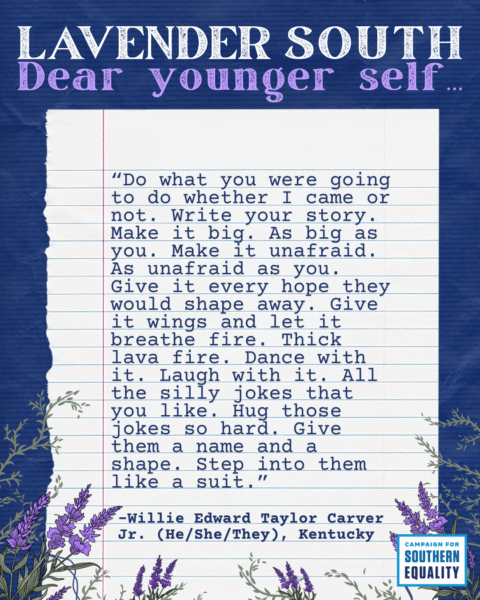 LAVENDER SOUTH
Dear younger self...
“Do what you were going
to do whether I came or
not. Write your story.
Make it big. As big as
you. Make it unafraid.
As unafraid as you.
Give it every hope they
would shape away. Give
it wings and let it
breathe fire. Thick
lava fire. Dance with
it. Laugh with it. All
the silly jokes that
you like. Hug those
jokes so hard. Give
them a name and a
shape. Step into them
like a suit.”
-Willie Edward Taylor Carver
Jr. (He/She/They), Kentucky
CAMPAIGN FOR
SOUTHERN
EQUALITY